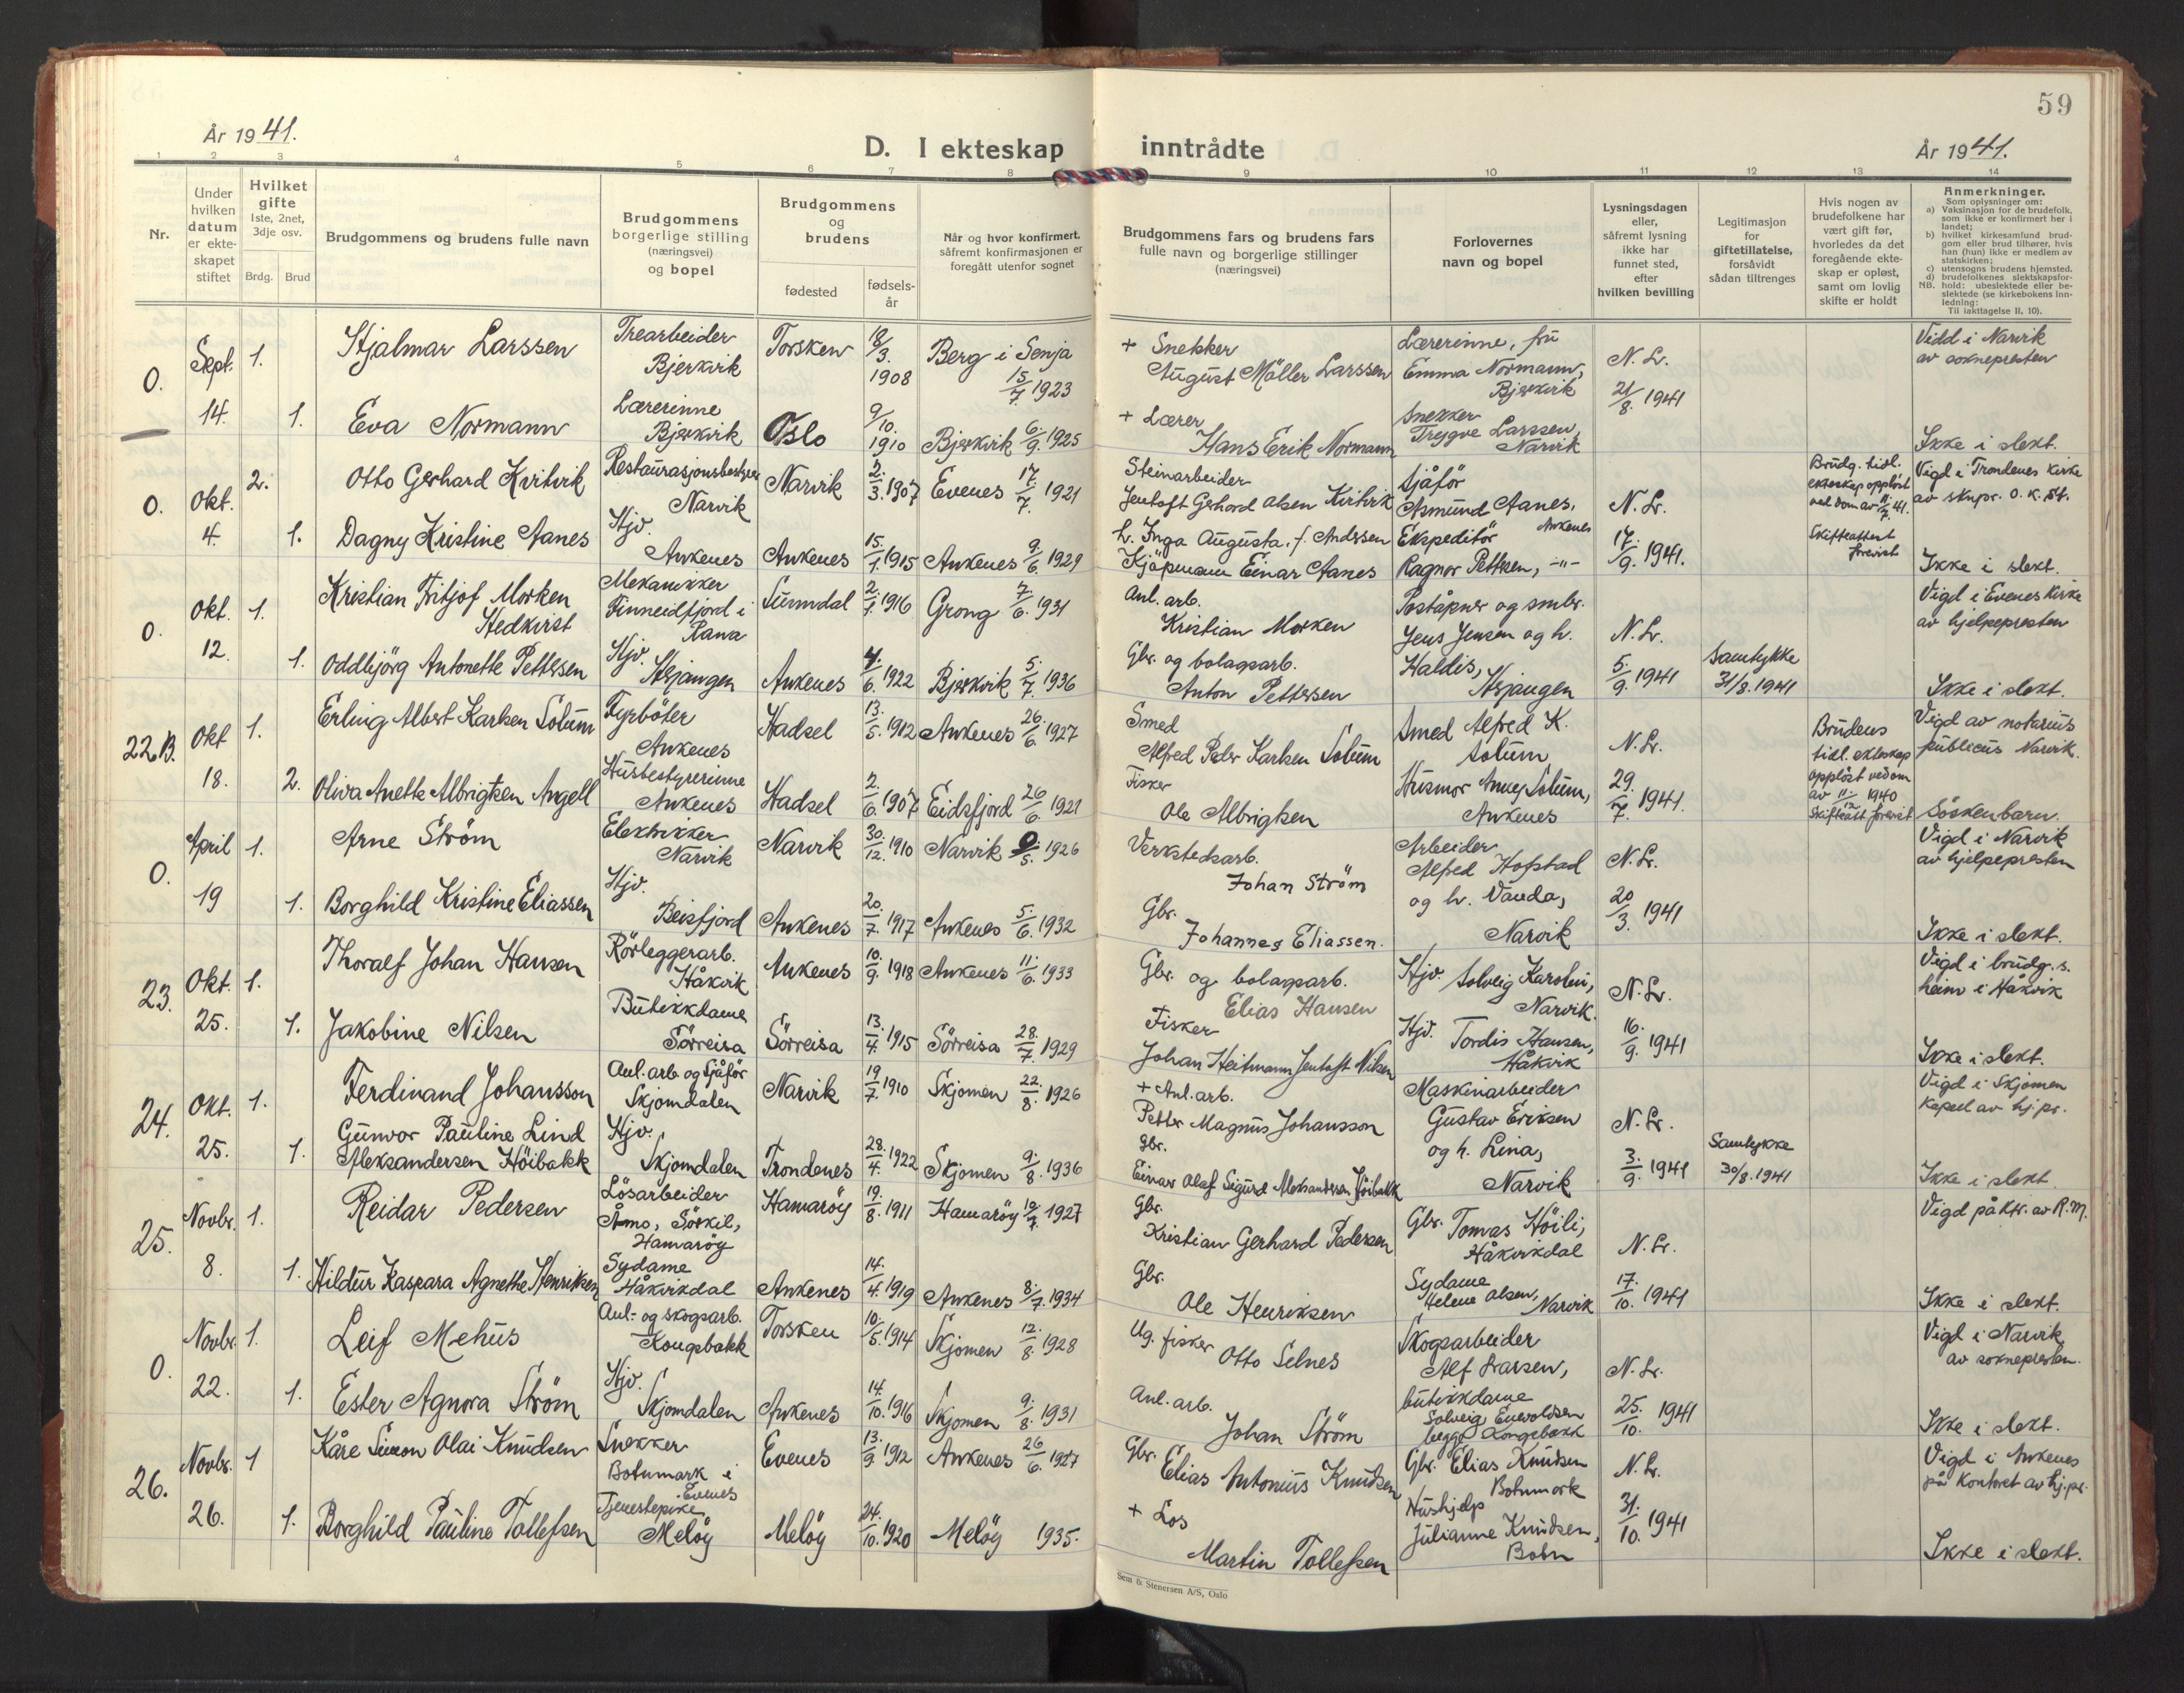 59
År 1941.
D. I ekteskap inntrådte
År 1941.
1 2 3 4 5 6 7 8 9 10 11 12 13 14
Nr.
Under hvilken datum er ekteskapet stiftet
Hvilket gifte
1ste, 2net, 3dje osv.
Brdg. Brud
Brudgommens og brudens fulle navn
Brudgommens borgerlige stilling (næringsvei) og bopel
Brudgommens og brudens
fødested
fødselsår
Når og hvor konfirmert, såfremt konfirmasjonen er foregått utenfor sognet
Brudgommens fars og brudens fars fulle navn og borgerlige stillinger (næringsvei)
Forlovernes navn og bopel
Lysningsdagen eller, såfremt lysning ikke har funnet sted, efter hvilken bevilling
Legitimasjon for giftetillatelse, forsåvidt sådan tiltrenges
Hvis nogen av brudefolkene har vært gift før, hvorledes da det foregående ekteskap er opløst, samt om lovlig skifte er holdt
Anmerkninger.
Som oplysninger om:
a) Vaksinasjon for de brudefolk, som ikke er konfirmert her i landet;
b) hvilket kirkesamfund brudgom eller brud tilhører, hvis han (hun) ikke er medlem av statskirken;
c) utensogns brudens hjemsted.
d) brudefolkenes slektskapsforhold: ubeslektede eller beslektede (se kirkebokens innledning:
NB.
Til iakttagelse II. 10).
0. Sept. 14. 1. Hjalmar Larssen Trearbeider Bjerkvik Torsken 18/3. 1908 Berg i Senja 15/7. 1923 + Snekker August Möller Larssen Lærerinne, fru Emma Normann, Bjerkvik N. Lv. 21/8. 1941 Vidd i Narvik av soknepresten
1. Eva Normann Lærerinne Bjerkvik Oslo 9/10. 1910 Bjerkvik 6/9. 1925 + Lærer Hans Erik Normann Snekker Trygve Larssen, Narvik Ikke i slekt.
0. Okt. 4. 2. Otto Gerhard Kvitvik Restaurasjonsbestyrer Narvik Narvik 2/3. 1907 Evenes 17/7. 1921 Steinarbeider Jentoft Gerhard Olsen Kvitvik Sjåför Asmund Aanes, Ankenes N. Lv. 17/9. 1941. Brudg. tidl. ekteskap opplöst ved dom av 11/7. 41. Skifteattest forevist Vigd i Trondenes kirke av sknpr. O. K. St.
1. Dagny Kristine Aanes Hjv. Ankenes Ankenes 15/1. 1915 Ankenes 9/6. 1929 h. Inga Augusta, f. Andersen Kjöpmann Einar Aanes Ekspeditör Ragnar Pettersen, -"- Ikke i slekt.
0. Okt. 12. 1. Kristian Fritjof Morken Hedkvist Mekanikker Finneidfjord i Rana Sunndal 2/1. 1916 Grong 7/6. 1931 Anl. arb. Kristian Morken Poståpner og smbr. Jens Jensen og h. Haldis, Herjangen N. Lv. 5/9. 1941 Samtykke 31/8. 1941 Vigd i Evenes kirke av hjelpepresten
1. Oddbjörg Antonette Pettersen Hjv. Herjangen Ankenes 4/6. 1922 Bjerkvik 5/7. 1936 Gbr. og bolagsarb. Anton Pettersen Ikke i slekt.
22.B. Okt 18. 1. Erling Albert Karlsen Solum Fyrböter Ankenes Hadsel 13/5. 1912 Ankenes 26/6. 1927 Smed Alfred Peder Karlsen Solum Smed Alfred K. Solum N. Lv. 29/7. 1941. Brudens tidl. ekteskap opplöst ved dom av 11/12 1940 Skifteatt. forevist Vigd av notarius publicus Narvik.
2. Oliva Anette Albrigtsen Angell Husbestyrerinne Ankenes Hadsel 2/6. 1907 Eidsfjord 26/6. 1921 Fisker Ole Albrigtsen Husmor Anney Solum, Ankenes Söskenbarn.
0. April 19 1. Arne Ström Elektrikker Narvik Narvik 30/12. 1910 Narvik 9/5. 1926 Verkstedsarb. Johan Ström Arbeider Alfred Hofstad og h. Vanda, Narvik N. Lv. 20/3. 1941 Vigd i Narvik av hjelpepresten
1. Borghild Kristine Eliassen Hjv. Beisfjord Ankenes 20/7. 1917 Ankenes 5/6. 1932 Gbr. Johannes Eliassen. Ikke i slekt.
23. Okt. 25. 1. Thoralf Johan Hansen Rörleggerarb. Håkvik Ankenes 10/9. 1918 Ankenes 11/6. 1933 Gbr. og bolagsarb. Elias Hansen Hjv. Solveig Karoliu, Narvik. N. Lv. 16/9. 1941 Vigd i brudg. s. heim i Håkvik
1. Jakobine Nilsen Butikkdame Sörreisa Sörreisa 13/4. 1915 Sörreisa 28/7. 1929 Fisker Johan Heitmann Jentoft Nilsen Hjv. Tordis Hansen, Håkvik Ikke i slekt.
24. Okt. 25. 1. Ferdinand Johansson Anl. arb. og Sjåför Skjomdalen Narvik 19/7. 1910 Skjomen 22/8. 1926 + Anl. arb. Petter Magnus Johansson Maskinarbeider Gustav Eriksen og h. Lina, Narvik N. Lv. 3/9. 1941 Samtykke 30/8. 1941 Vigd i Skjomen kapell av hj. pr.
1. Gunvor Pauline Lind Aleksandersen Höibakk Hjv. Skjomdalen Trondenes 28/4. 1922 Skjomen 9/8. 1936 Gbr. Einar Olaf Sigurd Aleksandersen Höibakk Ikke i slekt.
25. Novbr. 8. 1. Reidar Pedersen Lösarbeider Åmo, Sörkil, Hamaröy Hamaröy 19/8. 1911 Hamaröy 10/7. 1927 Gbr. Kristian Gerhard Pedersen Gbr. Tomas Höili, Håkvikdal N. Lv. 17/10. 1941 Vigd på ktr. av R.M.
1. Hildur Kaspara Agnethe Henriksen Sydame Håkvikdal Ankenes 14/4. 1919 Ankenes 8/7. 1934 Gbr. Ole Henriksen Sydame Helene Olsen, Narvik Ikke i slekt.
0. Novbr. 22. 1. Leif Mehus Anl.- og skogsarb. Kongsbakk Torsken 10/5. 1914 Skjomen 12/8. 1928 Ug. fisker Otto Selnes Skogsarbeider Alf Larsen, N. Lv. 25/10. 1941 Vigd i Narvik av soknepresten.
1. Ester Agnora Ström Hjv. Skjomdalen Ankenes 14/10. 1916 Skjomen 9/8. 1931 Anl. arb. Johan Ström butikkdame Solveig Enevoldsen begge Kongsbakk Ikke i slekt.
26. Novbr. 26. 1 Kåre Simon Olai Knudsen Snekker Botnmark i Evenes Evenes 13/9. 1912 Ankenes 26/6. 1927 Gbr. Elias Antonius Knudsen Gbr. Elias Knudsen Botnmark N. Lv. 31/10. 1941 Vigd i Ankenes på kontoret av hj. pr.
1. Borghild Pauline Tollefsen Tjenestepike Melöy Melöy 24/10. 1920 Melöy 1935. + Los Martin Tollefsen Hushjelp Julianne Knudsen, Botn Ikke i slekt.
Sem & Stenersen A/S, Oslo